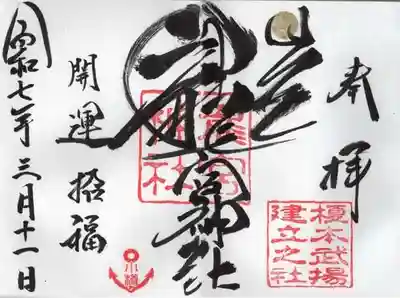 奉拝
榎本武揚
建立之社
龍宮神社
龍宮
神社
開運招福
小樽
令和七年三月十一日